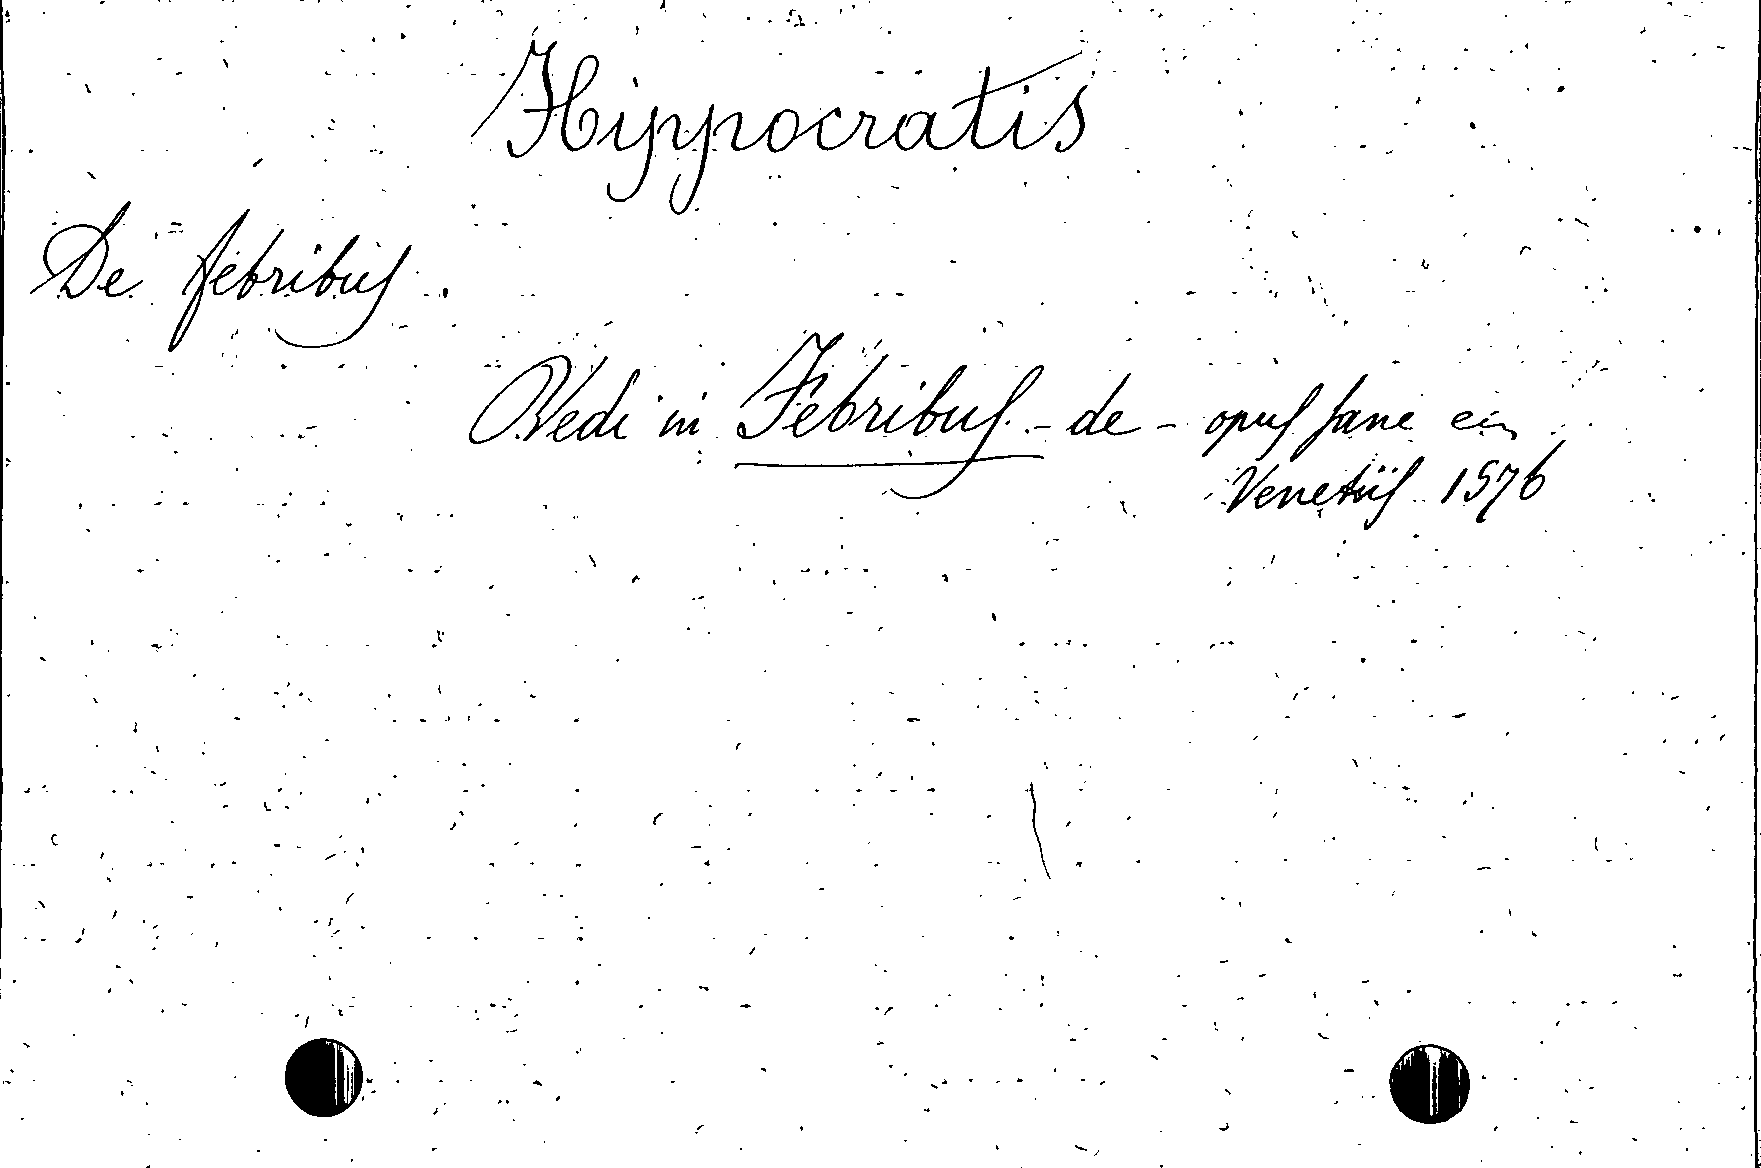 Hippocratis
De febribus.
Vedi in Febribus - de - opus sane
Venetiis 1576